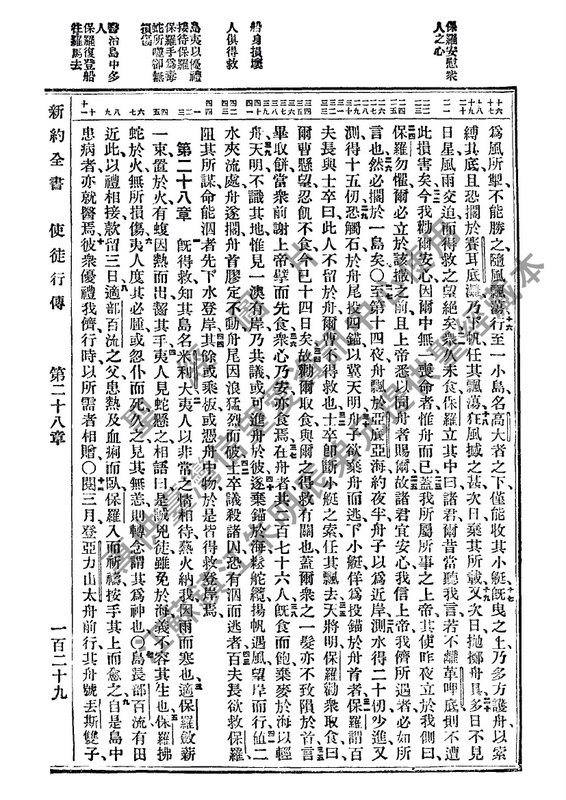 保羅安慰衆人之心
船身損壞人俱得救
島夷以優禮接待保羅
保羅手爲毒蛇所噬卻無損傷
醫治島中多人
保羅復登船往羅馬去
爲風所掣不能勝之隨風飄蕩行至一小島名高大者之下僅能收其小艇旣曳之上乃多方護舟以索
縛其底且恐擱於賽耳底灘乃落帆任其飄蕩狂風撼之甚次日棄其所載又次日拋擲舟具多日不見
日星風雨交迫而得救之望絕矣衆久未食保羅立其中曰諸君爾昔當聽我言若不離革哩底則不遭
此損害矣今我勸爾安心因爾中無一喪命者惟舟而已蓋我所屬所事之上帝其使昨夜立於我側曰
保羅勿懼爾必立於該撒之前且上帝悉以同舟者賜爾故諸君宜安心我信上帝我儕所遇者必如所
言也然必擱於一島矣〇至第十四夜舟飄於亞底亞海約夜半舟子以爲近岸測水得二十仞少進又
測得十五仞恐觸石於舟尾投四錨以冀天明舟子欲棄舟而逃下小艇佯爲投錨於舟首者保羅謂百
夫長與士卒曰此人不留於舟爾曹不得救也士卒卽斷小艇之索任其飄去天將明保羅勸衆取食曰
爾曹懸望忍飢不食今已十四日矣故勸爾取食與爾之得救有關也蓋爾衆之一髮亦不致隕於首言
畢取餅當衆前謝上帝擘而先食衆心乃安亦食焉在舟者共二百七十六人旣食而飽棄麥於海以輕
舟天明不識其地惟見一澳有岸乃共議或可進舟於彼遂棄錨於海鬆舵纜揚帆遇風望岸而行値二
水夾流處舟遂擱舟首膠定不動舟尾因浪猛烈而破士卒議殺諸囚恐有泅而逃者百夫長欲救保羅
阻其所謀命能泅者先下水登岸其餘或乘板或憑舟中物於是皆得救登岸焉
第二十八章 旣得救知其島名米利大夷人以非常之情相待爇火納我因雨而寒也適保羅斂薪
一束置於火有蝮因熱而出齧其手夷人見蛇懸之相語曰是誠兇徒雖免於海義不容其生也保羅拂
蛇於火無所損傷夷人度其必腫或忽仆而死久之見其無恙則轉念謂其爲神也〇島長部百流有田
近此以禮相接款留三日適部百流之父患熱及血痢而臥保羅入而祈禱按手其上而愈之自是島中
患病者亦就醫焉彼衆優禮我儕行時以所需者相贈〇閱三月登亞力山太舟前行其舟號丟斯雙子
新約全書 使徒行傳 第二十八章 一百二十九